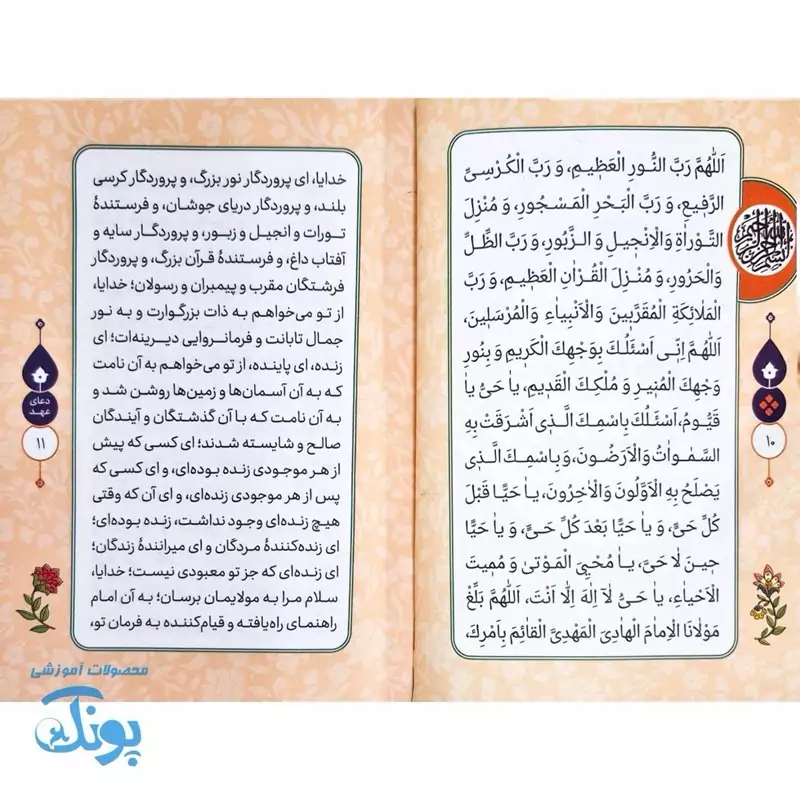 اَللّٰهُمَّ رَبَّ النُّورِ الْعَظيمِ، وَ رَبَّ الْكُرْسِيِّ
الرَّفيعِ، وَ رَبَّ الْبَحْرِ الْمَسْجُورِ، وَ مُنْزِلَ
التَّوْراةِ وَ الْاِنْجيلِ وَ الزَّبُورِ، وَ رَبَّ الظِّلِّ
وَ الْحَرُورِ، وَ مُنْزِلَ الْقُرْانِ الْعَظيمِ، وَ رَبَّ
الْمَلائِكَةِ الْمُقَرَّبينَ وَ الْاَنْبِياءِ وَ الْمُرْسَلينَ،
اَللّٰهُمَّ اِنّى اَسْئَلُكَ بِوَجْهِكَ الْكَريمِ وَ بِنُورِ
وَجْهِكَ الْمُنيرِ وَ مُلْكِكَ الْقَديمِ، يا حَىُّ يا
قَيُّومُ، اَسْئَلُكَ بِاسْمِكَ الَّذى اَشْرَقَتْ بِهِ
السَّمٰواتُ وَ الْاَرَضُونَ، وَ بِاسْمِكَ الَّذى
يَصْلَحُ بِهِ الْاَوَّلُونَ وَ الْاٰخِرُونَ، يا حَيًّا قَبْلَ
كُلِّ حَىٍّ، وَ يا حَيًّا بَعْدَ كُلِّ حَىٍّ، وَ يا حَيًّا
حينَ لا حَىَّ، يا مُحْيِىَ الْمَوْتىٰ وَ مُميتَ
الْاَحْياءِ، يا حَىُّ لا اِلٰهَ اِلّا اَنْتَ، اَللّٰهُمَّ بَلِّغْ
مَوْلانَا الْاِمامَ الْهادِىَ الْمَهْدِىَّ الْقائِمَ بِاَمْرِكَ
بسم الله الرحمن الرحیم
۱۰
خدایا، ای پروردگار نور بزرگ، و پروردگار کرسی
بلند، و پروردگار دریای جوشان، و فرستندهٔ
تورات و انجیل و زبور، و پروردگار سایه و
آفتاب داغ، و فرستندهٔ قرآن بزرگ، و پروردگار
فرشتگان مقرب و پیمبران و رسولان؛ خدایا،
از تو می‌خواهم به ذات بزرگوارت و به نور
جمال تابانت و فرمانروایی دیرینه‌ات؛ ای
زنده، ای پاینده، از تو می‌خواهم به آن نامت
که به آن آسمان‌ها و زمین‌ها روشن شد و
به آن نامت که با آن گذشتگان و آیندگان
صالح و شایسته شدند؛ ای کسی که پیش
از هر موجودی زنده بوده‌ای، و ای کسی که
پس از هر موجودی زنده‌ای، و ای آن که وقتی
هیچ زنده‌ای وجود نداشت، زنده بوده‌ای؛
ای زنده‌کنندهٔ مردگان و ای میرانندهٔ زندگان؛
ای زنده‌ای که جز تو معبودی نیست؛ خدایا،
سلام مرا به مولایمان برسان؛ به آن امام
راهنمای راه‌یافته و قیام‌کننده به فرمان تو،
دعای
عهد
۱۱
محصولات آموزشی
پونک